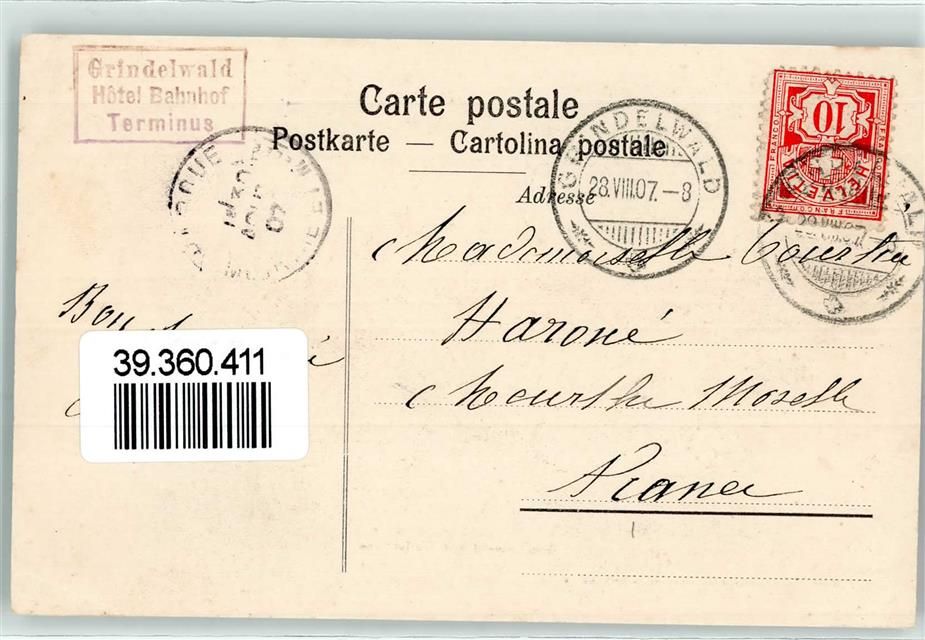 Grindelwald
Hôtel Bahnhof
Terminus
Carte postale
Postkarte — Cartolina postale
Adresse
GRINDELWALD
28.VIII.07.-8
10
FRANCO
HELVETIA
Mademoiselle Courtin
Haroué
Meurthe Moselle
France
39.360.411